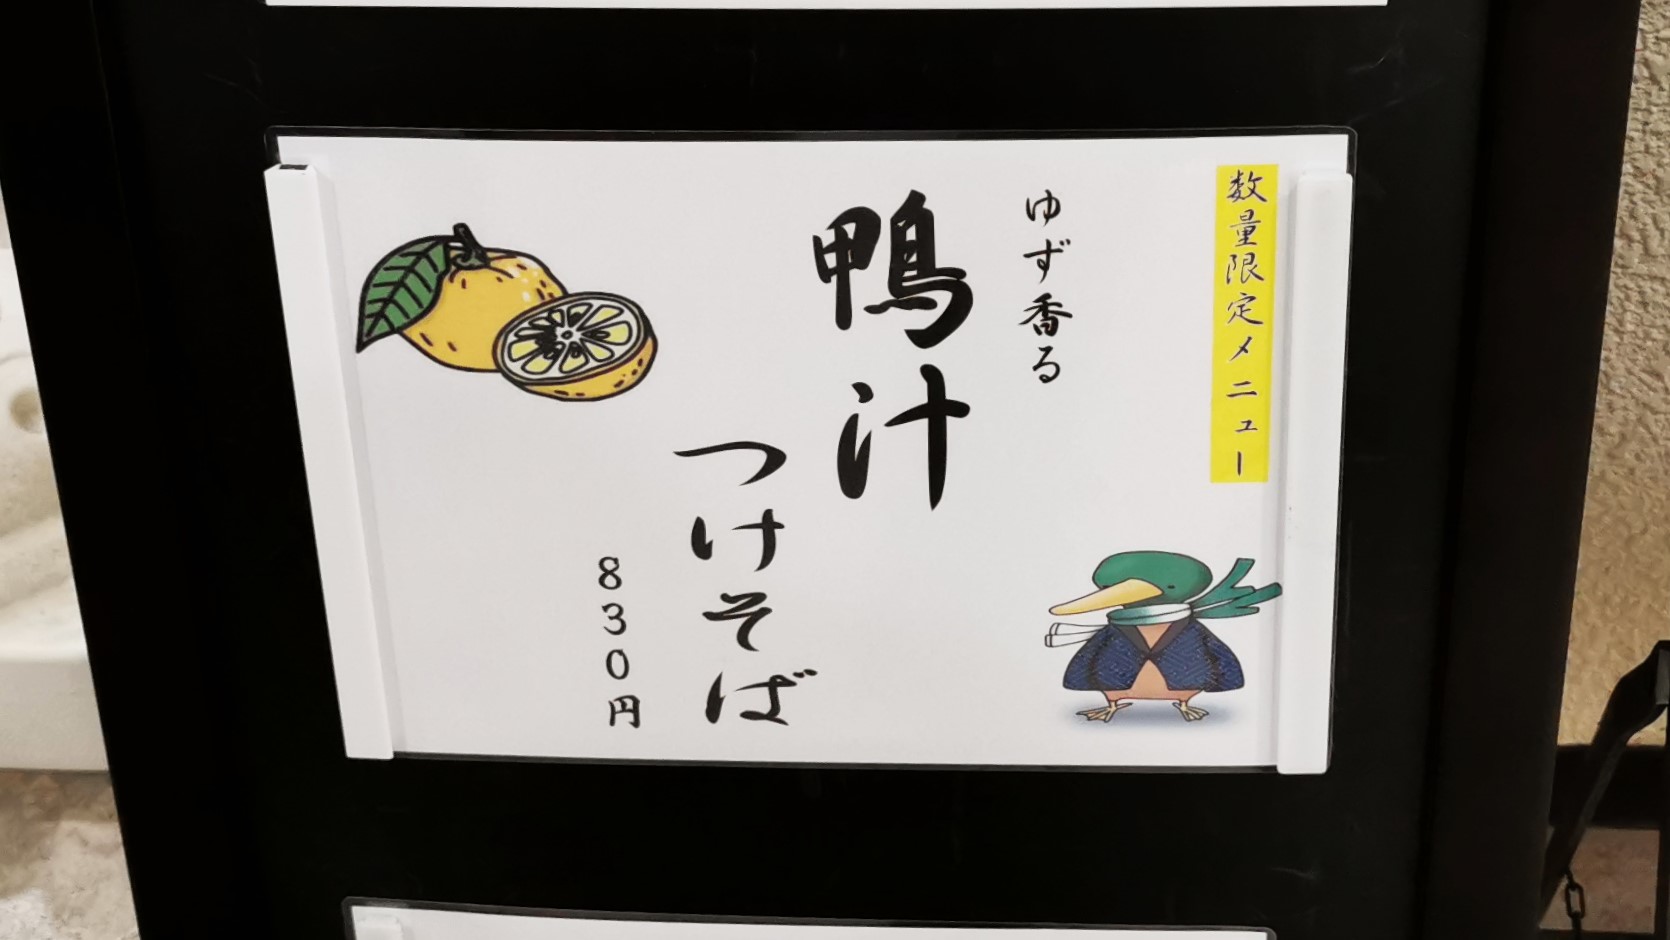 数量限定メニュー
ゆず香る
鴨汁
つけそば
830円